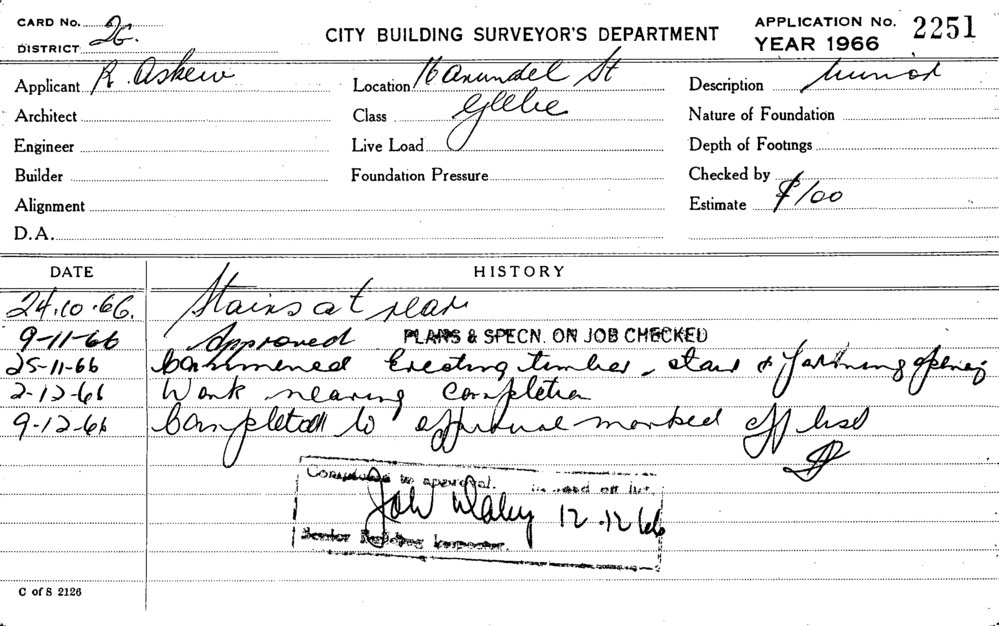 CARD No. 2G.
DISTRICT
CITY BUILDING SURVEYOR'S DEPARTMENT
APPLICATION No. 2251
YEAR 1966
Applicant R. Askew
Location 16 Arundel St
Description Minor
Architect
Class Glebe
Nature of Foundation
Engineer
Live Load
Depth of Footings
Builder
Foundation Pressure
Checked by
Alignment
Estimate $100
D.A.
DATE HISTORY
24.10.66. Stairs at rear
9-11-66 Approved PLANS & SPECN. ON JOB CHECKED
25-11-66 Commenced Erecting timber stair & forming opening
2-12-66 Work nearing completion
9-12-66 Completed to approval marked off list
Completed to approval. marked off list.
12.12.66
Senior Building Inspector.
C of S 2126